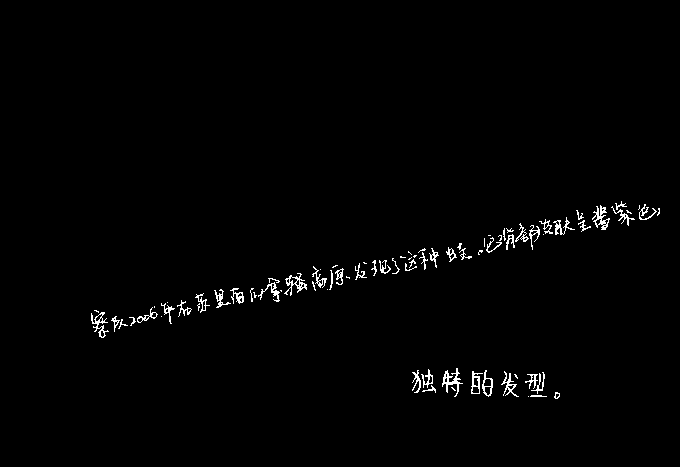 察队2006年在苏里南的拿骚高原发现了这种蛙。它背部皮肤呈酱紫色,
独特的发型。